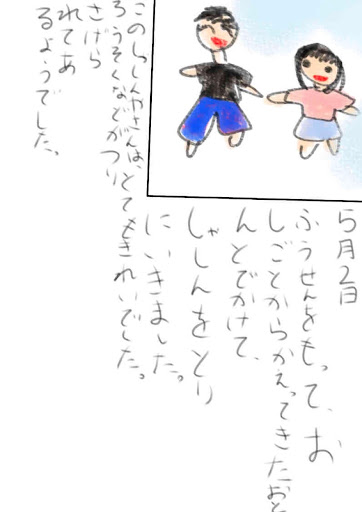 5月2日
ふうせんをもって、お
しごとからかえってきたおと
んとでかけて、
しゃしんをとり
にいきました。
このしゃしんやさんは、とてもきれいでした。
ろうそくなどがつり
さげら
れてあ
るようでした。